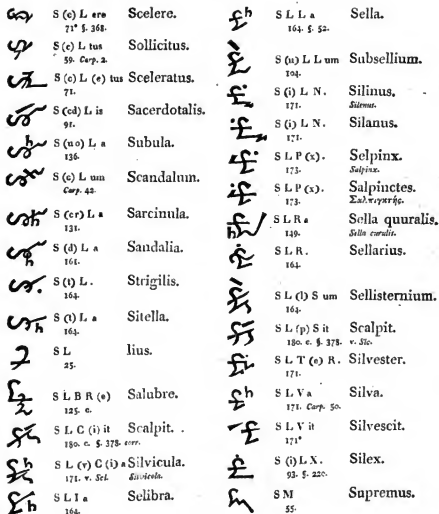 S (c) L ere Scelere.
71ª §. 368.
S (c) L tus Sollicitus.
59. Carp. 2.
S (c) L (e) tus Sceleratus.
71.
S (cd) L is Sacerdotalis.
91.
S (uo) L a Subula.
136.
S (c) L um Scandalum.
Carp. 42.
S (cr) L a Sarcinula.
131.
S (d) L a Sandalia.
161.
S (t) L . Strigilis.
164.
S (t) L a Sitella.
164.
S L lius.
25.
S L B R (e) Salubre.
125. c.
S L C (i) it Scalpit. .
180. c. §. 378. corr.
S L (v) C (i) a Silvicula.
171. v. Sel. Silvicola.
S L I a Selibra.
164.
S L L a Sella.
164. §. 52.
S (u) L L um Subsellium.
104.
S (i) L N. Silinus.
171. Silenus.
S (i) L N. Silanus.
171.
S L P (x). Selpinx.
173. Salpinx.
S L P (x). Salpinctes.
173. Σαλπιγκτής.
S L R a Sella quuralis.
149. Sella curulis.
S L R . Sellarius.
164.
S L (l) S um Sellisternium.
164.
S L (p) S it Scalpit.
180. c. §. 378. v. Slc.
S L T (e) R. Silvester.
171.
S L V a Silva.
171. Carp. 50.
S L V it Silvescit.
171ª
S (i) L X. Silex.
93. §. 220.
S M Supremus.
55.